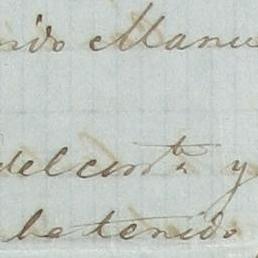 ndo Manu
del corr.te y
he tenido